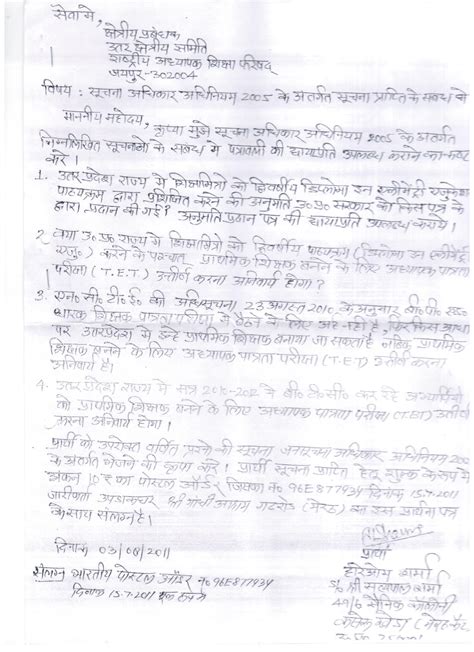 सेवा में,
क्षेत्रीय प्रबंधक
उत्तर क्षेत्रीय समिति
राष्ट्रीय अध्यापक शिक्षा परिषद्
जयपुर-302004
विषय : सूचना अधिकार अधिनियम 2005 के अंतर्गत सूचना प्राप्ति के संबंध में
माननीय महोदय, कृपया मुझे सूचना अधिकार अधिनियम 2005 के अंतर्गत
निम्नलिखित सूचनाओं के संबंध में पत्रावली की छायाप्रति उपलब्ध कराने का कष्ट
करें।
1. उत्तर प्रदेश राज्य में शिक्षामित्रों को द्विवर्षीय डिप्लोमा इन एलीमेंट्री एजुकेशन
पाठ्यक्रम द्वारा प्रशिक्षित करने की अनुमति उ०प्र० सरकार को किस पत्र के
द्वारा प्रदान की गई? अनुमति प्रदान पत्र की छायाप्रति उपलब्ध करायें।
2. क्या उ०प्र० राज्य में शिक्षामित्रों को द्विवर्षीय पाठ्यक्रम (डिप्लोमा इन एलीमेंट्री
एजु०) करने के पश्चात् प्राथमिक शिक्षक बनने के लिए अध्यापक पात्रता
परीक्षा (T.E.T) उत्तीर्ण करना अनिवार्य होगा?
3. एन०सी०टी०ई० की अधिसूचना 23 अगस्त 2010 के अनुसार बी०पी०एड०
धारक शिक्षक पात्रता परीक्षा में बैठने के लिए अर्ह नहीं है, फिर किस आधार
पर उत्तरप्रदेश में इन्हें प्राथमिक शिक्षक बनाया जा सकता है जबकि प्राथमिक
शिक्षक बनने के लिए अध्यापक पात्रता परीक्षा (T.E.T) उत्तीर्ण करना
अनिवार्य है।
4. उत्तर प्रदेश राज्य में सत्र में बी०टी०सी० कर रहे अभ्यार्थियों
को प्राथमिक शिक्षक बनने के लिए अध्यापक पात्रता परीक्षा (TET) उत्तीर्ण
करना अनिवार्य होगा।
प्रार्थी को उपरोक्त वर्णित प्रश्नों की सूचना जनसूचना अधिकार अधिनियम
के अंतर्गत भेजने की कृपा करें। प्रार्थी सूचना प्राप्ति हेतु शुल्क के रूप में
10 रु का पोस्टल ऑर्डर जिसका no 96E877934 दिनांक 15.7.2011
जारीकर्ता उपडाकघर श्री गांधी आश्रम गढ़रोड (मेरठ) इस प्रार्थना पत्र
के साथ संलग्न है।
दिनांक 03/08/2011
प्रार्थी
शर्मा
S/o श्री सत्यपाल शर्मा
49/6 सैनिक कॉलोनी
संलग्न भारतीय पोस्टल ऑर्डर no 96E877934
दिनांक 15.7.2011